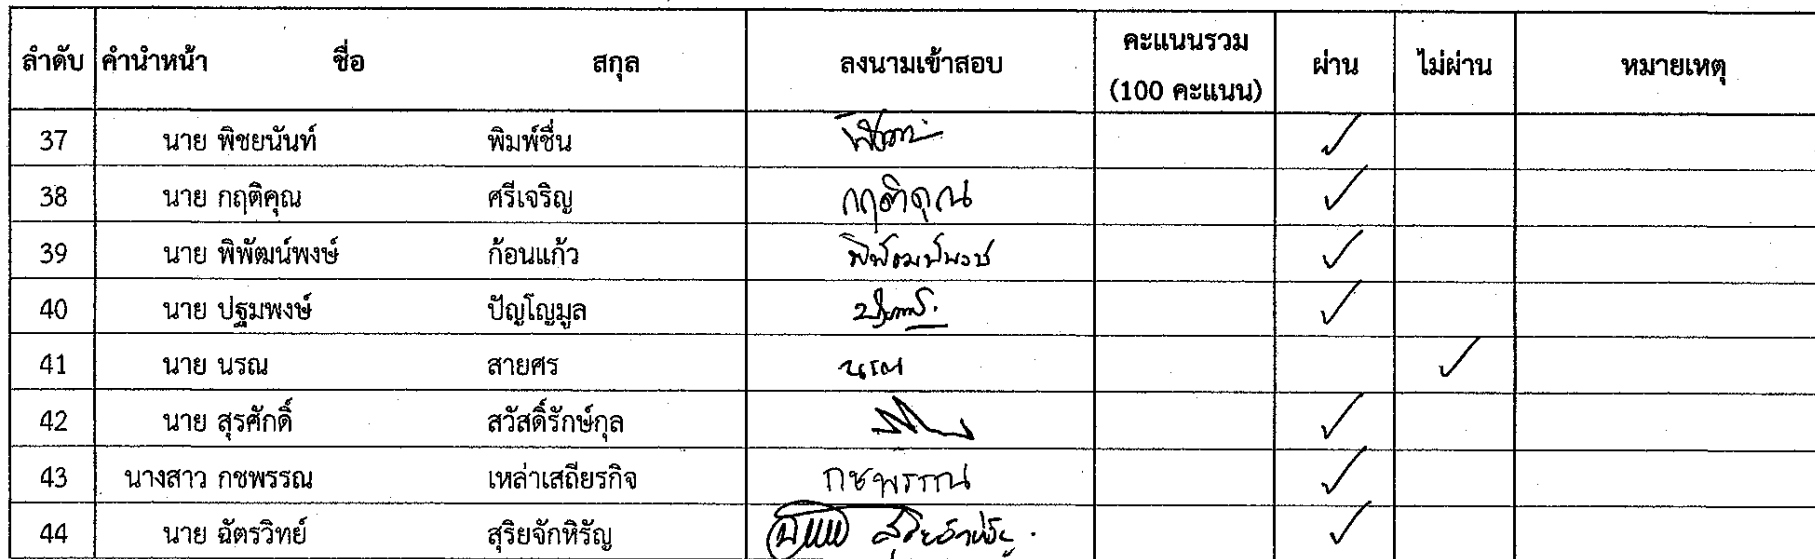 ลำดับ คำนำหน้า ชื่อ สกุล ลงนามเข้าสอบ คะแนนรวม (100 คะแนน) ผ่าน ไม่ผ่าน หมายเหตุ
37 นาย พิชยนันท์ พิมพ์ชื่น ✓
38 นาย กฤติคุณ ศรีเจริญ กฤติคุณ ✓
39 นาย พิพัฒน์พงษ์ ก้อนแก้ว พิพัฒน์พงษ์ ✓
40 นาย ปฐมพงษ์ ปัญโญมูล ✓
41 นาย นรณ สายศร นรณ ✓
42 นาย สุรศักดิ์ สวัสดิ์รักษ์กุล ✓
43 นางสาว กชพรรณ เหล่าเสถียรกิจ กชพรรณ ✓
44 นาย ฉัตรวิทย์ สุริยจักหิรัญ ✓